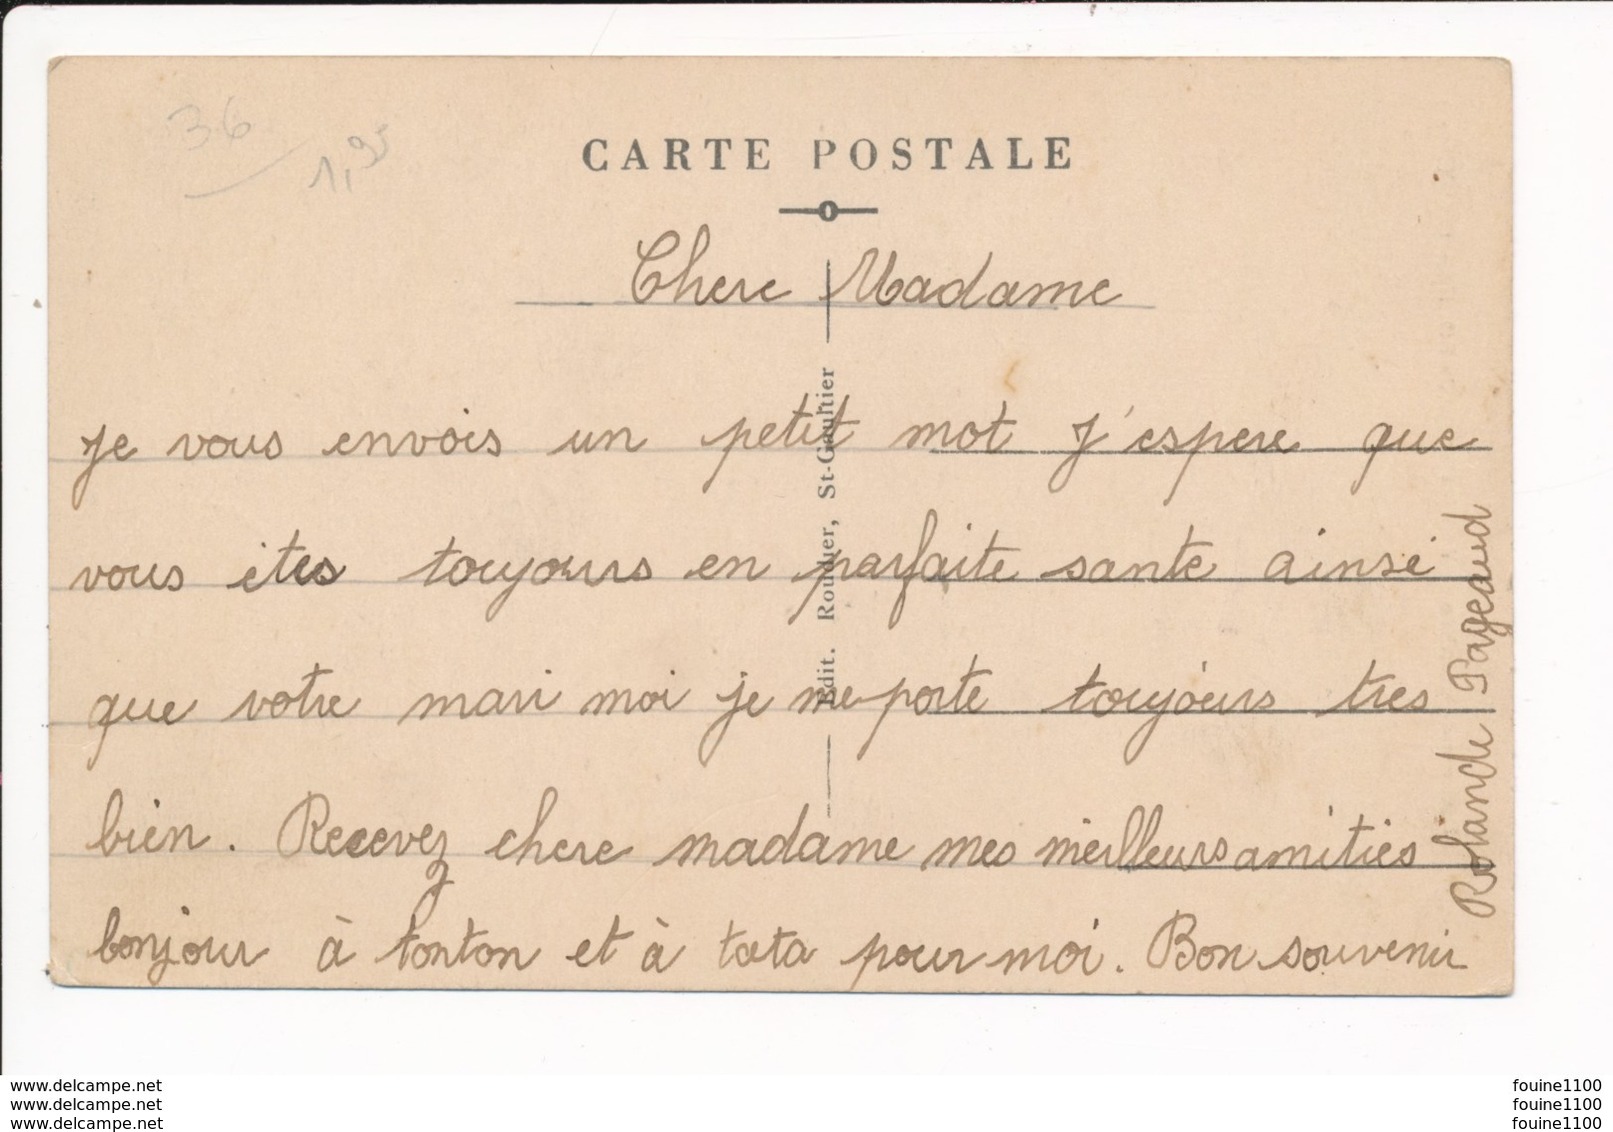 36
1,95
CARTE POSTALE
Chere Madame
Je vous envois un petit mot J'espere que
vous êtes toujours en parfaite sante ainsi
que votre mari moi je me porte toujours tres
bien. Recevez chere madame mes meilleurs amitiés
bonjour à tonton et à tata pour moi. Bon souvenir
Rolande Pageaud
Edit. Roudier, St-Gaultier
www.delcampe.net
www.delcampe.net
www.delcampe.net
fouine1100
fouine1100
fouine1100